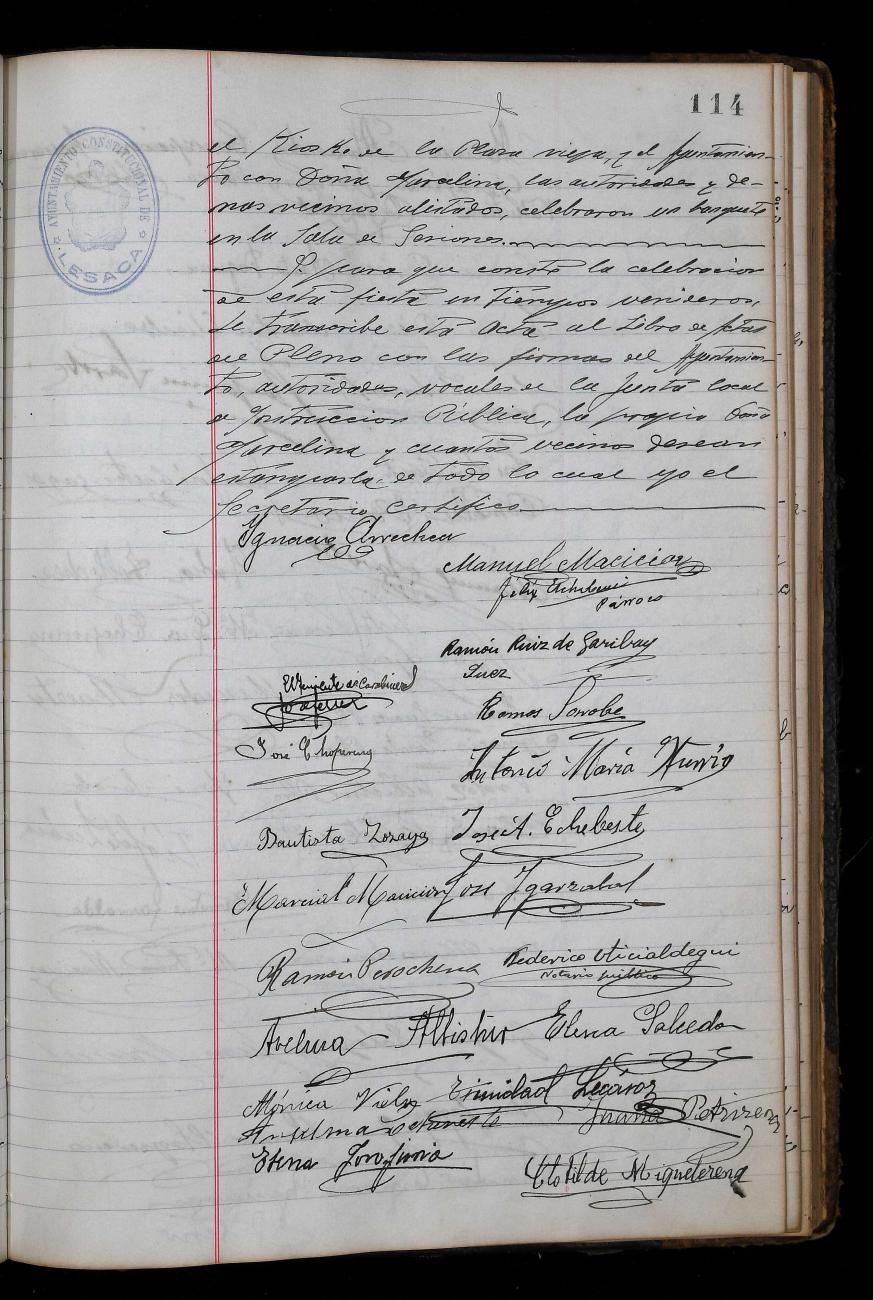 114
AYUNTAMIENTO CONSTITUCIONAL DE
LESACA
el Kiosko de la Plaza vieja, y el Ayuntamien-
to con Doña Marcelina, las autoridades y de-
mas vecinos alistados, celebraron un banquete
en la Sala de Sesiones.
Y para que conste la celebracion
de esta fiesta en tiempos venideros,
se transcribe esta acta al Libro de Actas
del Pleno con las firmas del Ayuntamien-
to, autoridades, vocales de la Junta local
de Instruccion Publica, la propia Doña
Marcelina y cuantos vecinos desean
estamparla, de todo lo cual yo el
Secretario certifico.
Ignacio Arrechea
Manuel Macicior
Felix Echeberri
Párroco
Ramón Ruiz de Garibay
Juez
El Teniente de Carabineros
Ramos Sarobe
José
Antonio María Yturria
Bautista Zozaya
José A. Echebeste
Marcial Macicior
Luis Ygarzabal
Ramón Perochena
Federico Oticialdegui
Notario público
Avelina Albistur
Elena Salcedo
Mónica
Trinidad Lecároz
Anselma
Juana
Elena
Clotilde Miqueterena